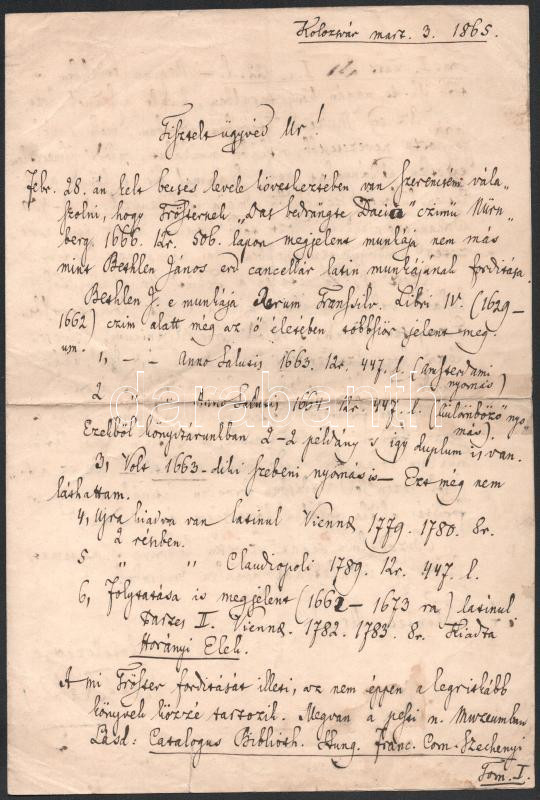 Kolozsvár mart. 3. 1865.
Tisztelt ügyvéd Úr!
Febr. 28.án kelt becses levele következtében van szerencsém vála„
szolni, hogy Trösternek „Das bedrängte Dacia" czimű Nürn„
berg. 1666. 12r. 506. lapon megjelent munkája nem más
mint Bethlen János erd cancellár latin munkájának forditása.
Bethlen J. e munkája Rerum Transilv. Libri IV. (1629–
1662) czim alatt még az ő életében többször jelent meg.
um. 1, – – Anno Salutis 1663. 12r. 447. l. (amsterdami
nyomás)
2 „ – Anno Salutis 1664. 12r. 447. l. (különböző nyo„
más).
Ezekből könyvtárunkban 2–2 példány s igy duplum is van.
3, Volt 1663–diki szebeni nyomás is – Ezt még nem
láthattam.
4, Ujra kiadva van latinul Viennæ 1779. 1780. 8r.
2 részben.
5 „ „ Claudiopoli 1789. 12r. 447. l.
6, Folytatása is megjelent (1662–1673 ra) latinul
Partes II. Viennæ. 1782. 1783. 8r. Kiadta
Horányi Elek.
A mi Tröster forditását illeti, az nem éppen a legritkább
könyvek közzé tartozik. Megvan a pesti n. Muzeumban
Lásd: Catalogus Biblioth. Hung. Franc. Com. Szechenyi
Tom. I.
darabanth